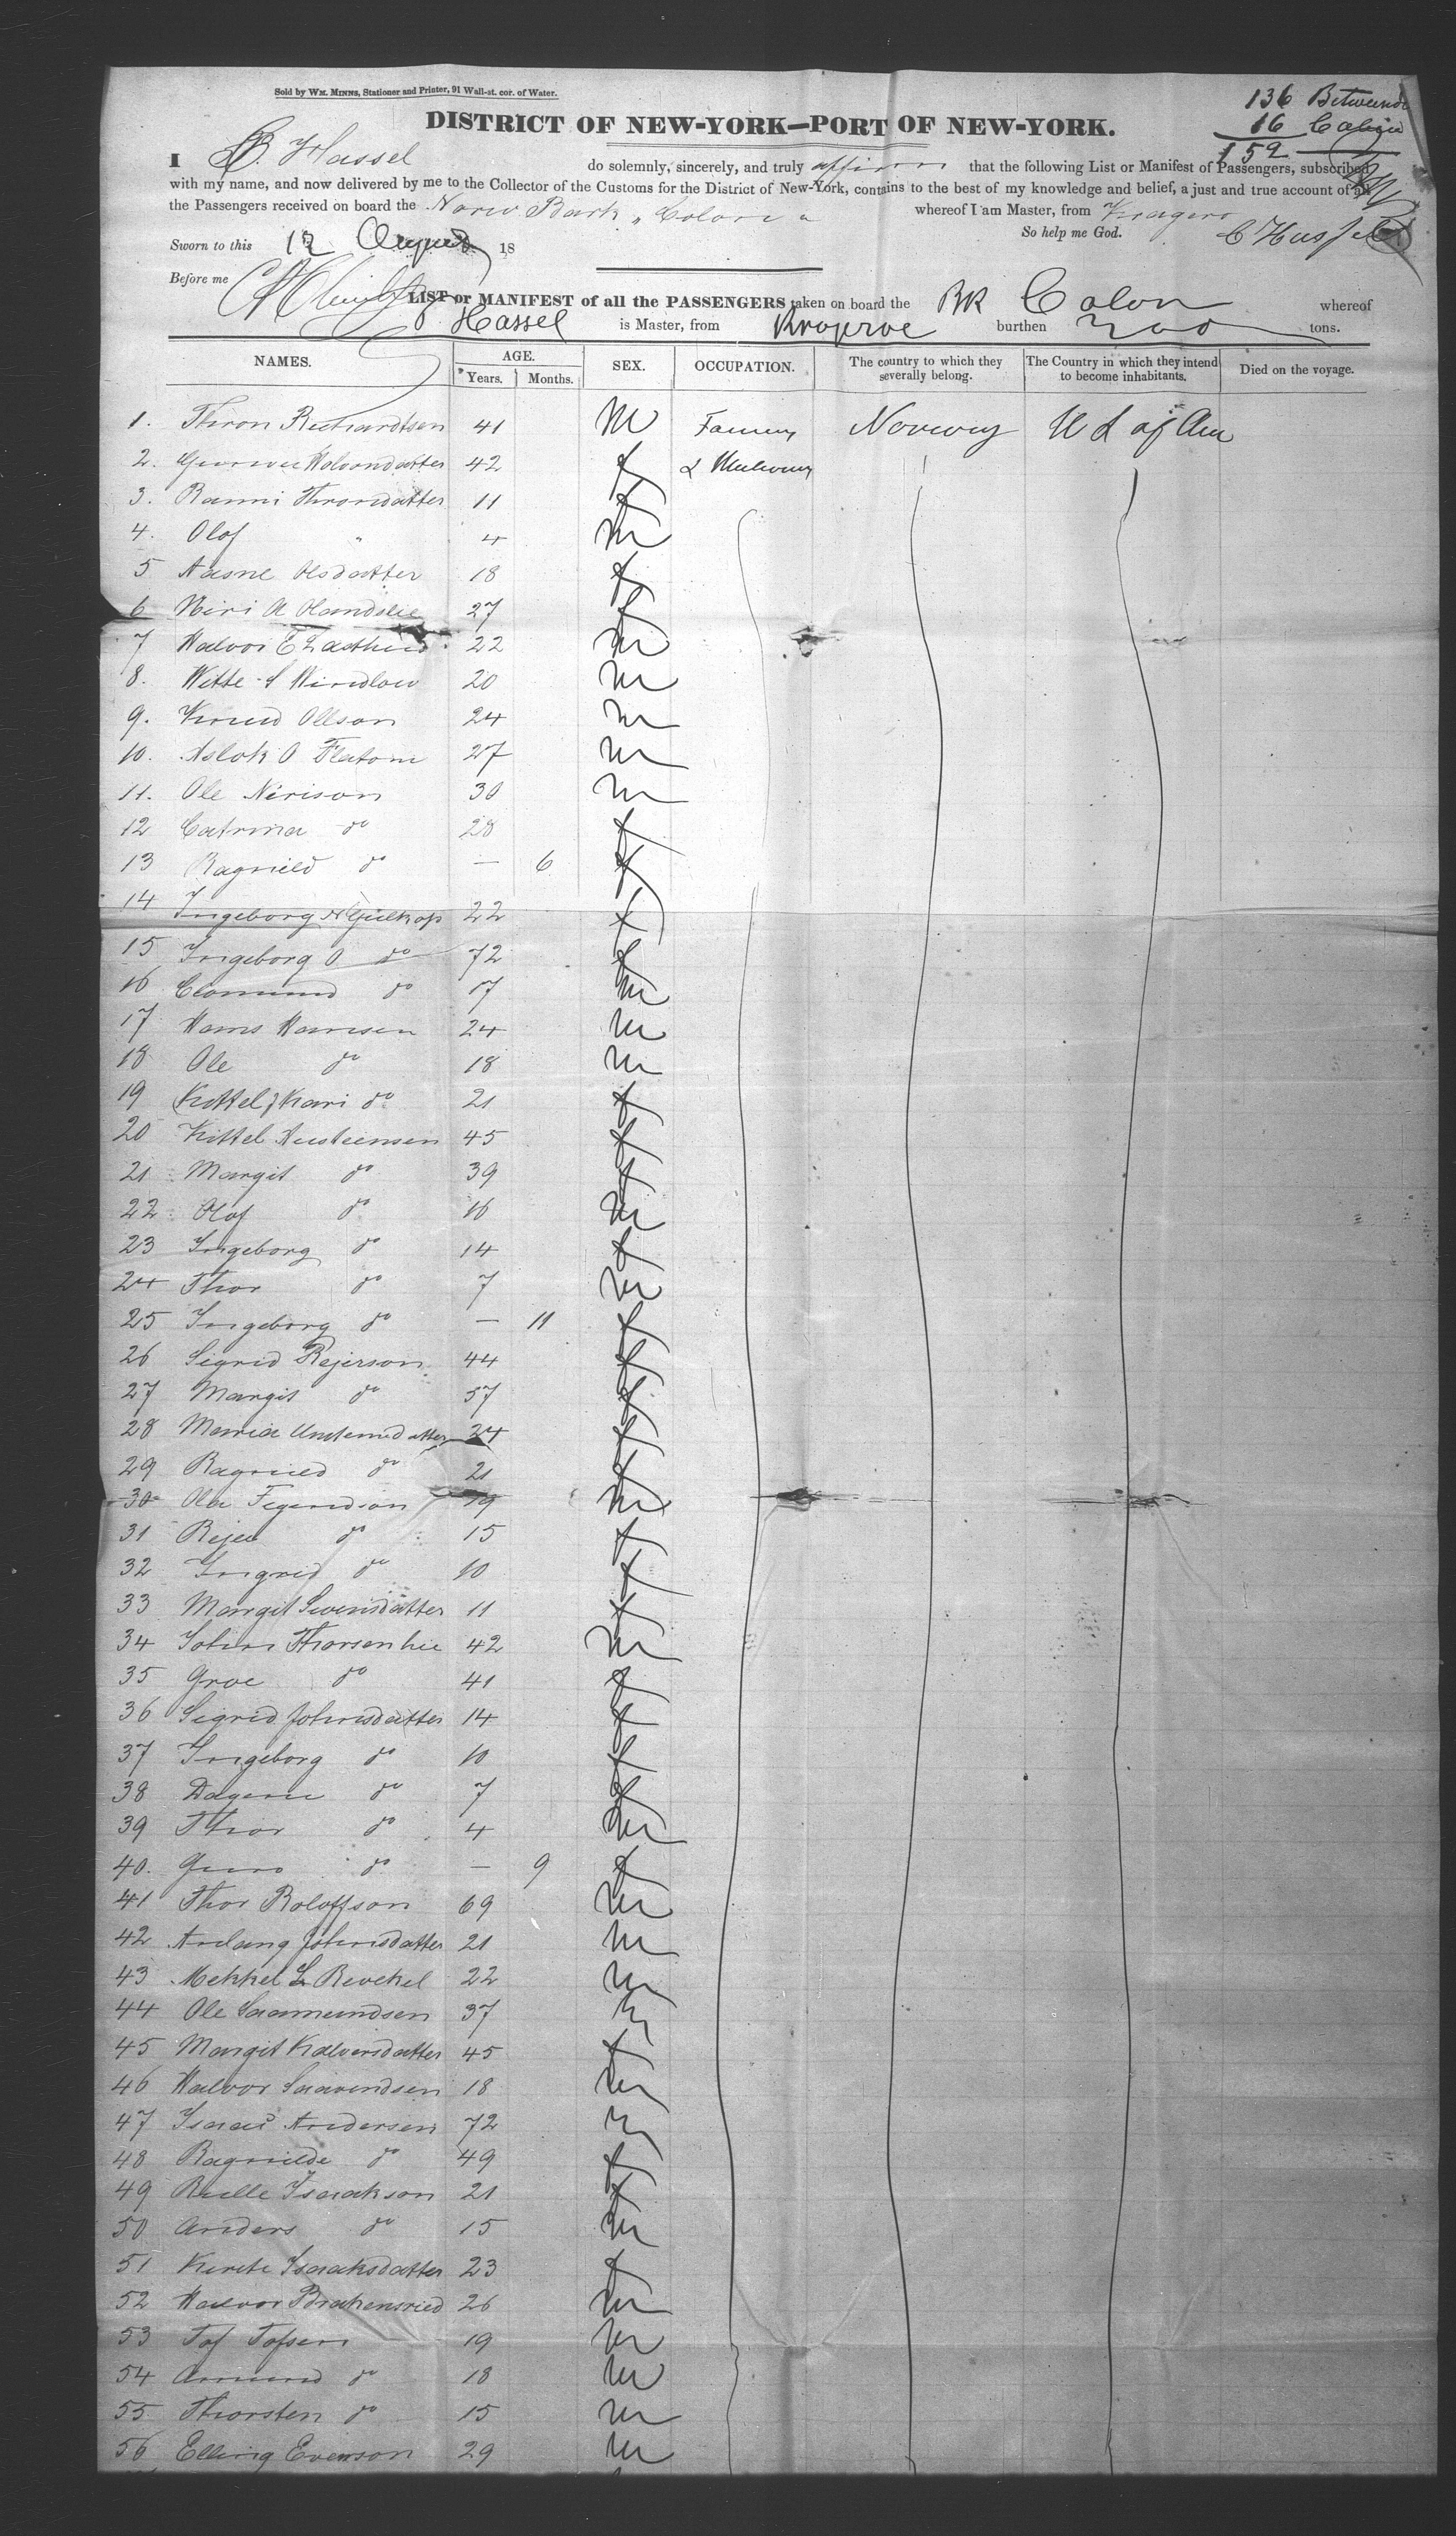 Sold by WM. MINNS, Stationer and Printer, 91 Wall-st. cor. of Water.
136
16 Cabin
152
DISTRICT OF NEW-YORK—PORT OF NEW-YORK.
I C. Hassel do solemnly, sincerely, and truly affirm that the following List or Manifest of Passengers, subscribed
with my name, and now delivered by me to the Collector of the Customs for the District of New-York, contains to the best of my knowledge and belief, a just and true account of all
the Passengers received on board the Norw Bark "Colon" whereof I am Master, from Kragero
Sworn to this 12 August 18 So help me God. C Hassel
Before me
LIST or MANIFEST of all the PASSENGERS taken on board the BK Colon whereof
Hassel is Master, from Krageroe burthen tons.
NAMES. AGE. Years. Months. SEX. OCCUPATION. The country to which they severally belong. The Country in which they intend to become inhabitants. Died on the voyage.
1. Thron Richardtsen 41 M Farmer Norway U S of Am
2. 42 f &
3. Ranni Throndatter 11 f
4. Olof " 4 m
5 Aasne Olsdatter 18 f
6 27 f
7 Halvor E 22 m
8. 20 m
9. Knud Ollson 24 m
10. Aslok O Flatom 27 m
11. Ole Nirison 30 m
12 Catrina do 28 f
13 Ragnild do — 6 f
14 Ingeborg 22 f
15 Ingeborg O do 72 f
16 do 17 m
17 Hans Hansen 24 m
18 Ole do 18 m
19 Kittel & Kari do 21 f
20 Kittel Austeensen 45 f
21 Margit do 39 f
22 Olof do 16 m
23 Ingeborg do 14 f
24 Thor do 7 m
25 Ingeborg do — 11 f
26 Sigrid Rejerson 44 f
27 Margit do 57 f
28 Maria 24 f
29 Ragnild do 21 f
30 Ole 19 m
31 Rejer do 15 f
32 Ingrid do 10 f
33 Margit Swensdatter 11 f
34 John Thorsen lie 42 m
35 Groe do 41 f
36 Sigrid Johnsdatter 14 f
37 Ingeborg do 10 f
38 do 7 f
39 Thor do 4 m
40. Guro do — 9 f
41 Thor Roloffson 69 m
42 Johnsdatter 21 m
43 Mekkel L 22 m
44 Ole Saamundsen 37 m
45 Margit Halvorsdatter 45 f
46 Halvor 18 m
47 Isaac Andersen 72 m
48 Ragnilde do 49 f
49 Isaakson 21 f
50 Anders do 15 m
51 Isaaksdatter 23 f
52 Halvor 26 m
53 Tof Tofsen 19 m
54 Amund do 18 m
55 Thorsten do 15 m
56 Elling Evenson 29 m